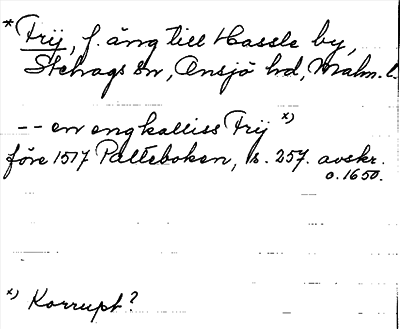 * Frij, f. äng till Hassle by,
Stehags sn, Onsjö hd, Malm. l.
-- en eng kalliss Frij x)
före 1517 Palteboken, s. 257. avskr.
o. 1650.
x) Korrupt?